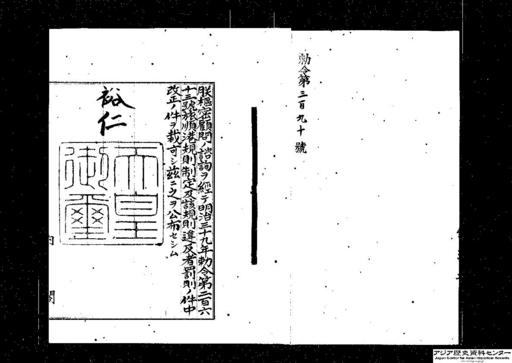 勅令第三百九十號
朕樞密顧問ノ諮詢ヲ經テ明治三十九年勅令第二百六
十三號旅順港規則制定及該規則違反者罰則ノ件中
改正ノ件ヲ裁可シ茲ニ之ヲ公布セシム
裕仁
天皇
御璽
内閣
アジア歴史資料センター
Japan Center for Asian Historical Records